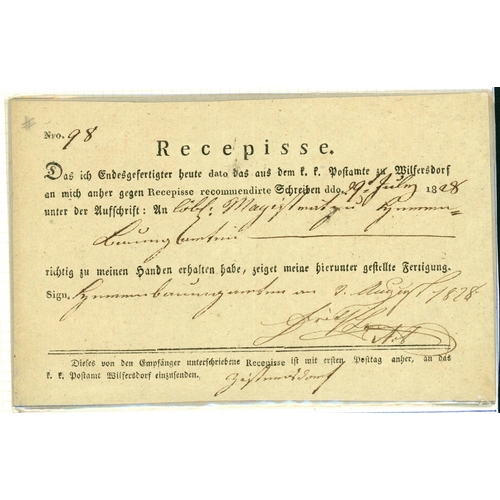 Nro. 98
Recepisse.
Das ich Endesgefertigter heute dato das aus dem k. k. Postamte zu Wilfersdorf
an mich anher gegen Recepisse recommendirte Schreiben ddo. 29. July 1828
unter der Aufschrift: An löbl. Magistrat zu Herren-
baumgarten
richtig zu meinen Handen erhalten habe, zeiget meine hierunter gestellte Fertigung.
Sign. Herrenbaumgarten am 2. August 1828
Dieses von den Empfänger unterschriebene Recepisse ist mit ersten Posttag anher, an das
k. k. Postamt Wilfersdorf einzusenden.
Zistersdorf